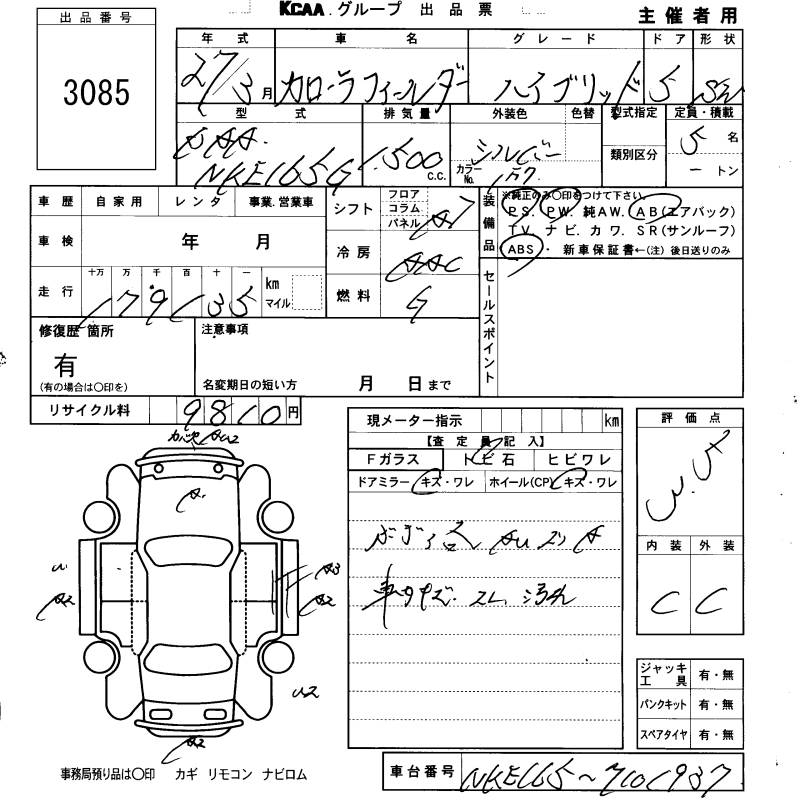 KCAA.グループ 出品票
主催者用
出品番号
3085
年式 車名 グレード ドア 形状
27/3月 カローラフィールダー ハイブリッド 5 SW
型式 排気量 外装色 色替 型式指定 定員・積載
類別区分
DAA- NKE165G 1,500 c.c. シルバー カラーNo. 1F7 5名
ートン
車歴 自家用 レンタ 事業.営業車
シフト フロア コラム パネル AT
装備品 ※純正のみ○印をつけて下さい
PS. PW. 純AW. AB(エアバック)
TV. ナビ. カワ. SR(サンルーフ)
ABS・ 新車保証書←(注) 後日送りのみ
車検 年 月
冷房 AAC
走行 十万 万 千 百 十 一
179135 km マイル
燃料 G
セールスポイント
修復歴 箇所
有
(有の場合は○印を)
注意事項
名変期日の短い方 月 日まで
リサイクル料 9810円
現メーター指示 km
【査定員記入】
Fガラス トビ石 ヒビワレ
ドアミラー キズ・ワレ ホイール(CP) キズ・ワレ
評価点
内装 外装
C C
カバヤ AU2
A
A2
A3
A2
U2
A2
ジャッキ工具 有・無
パンクキット 有・無
スペアタイヤ 有・無
事務局預り品は○印 カギ リモコン ナビロム
車台番号 NKE165~7101937